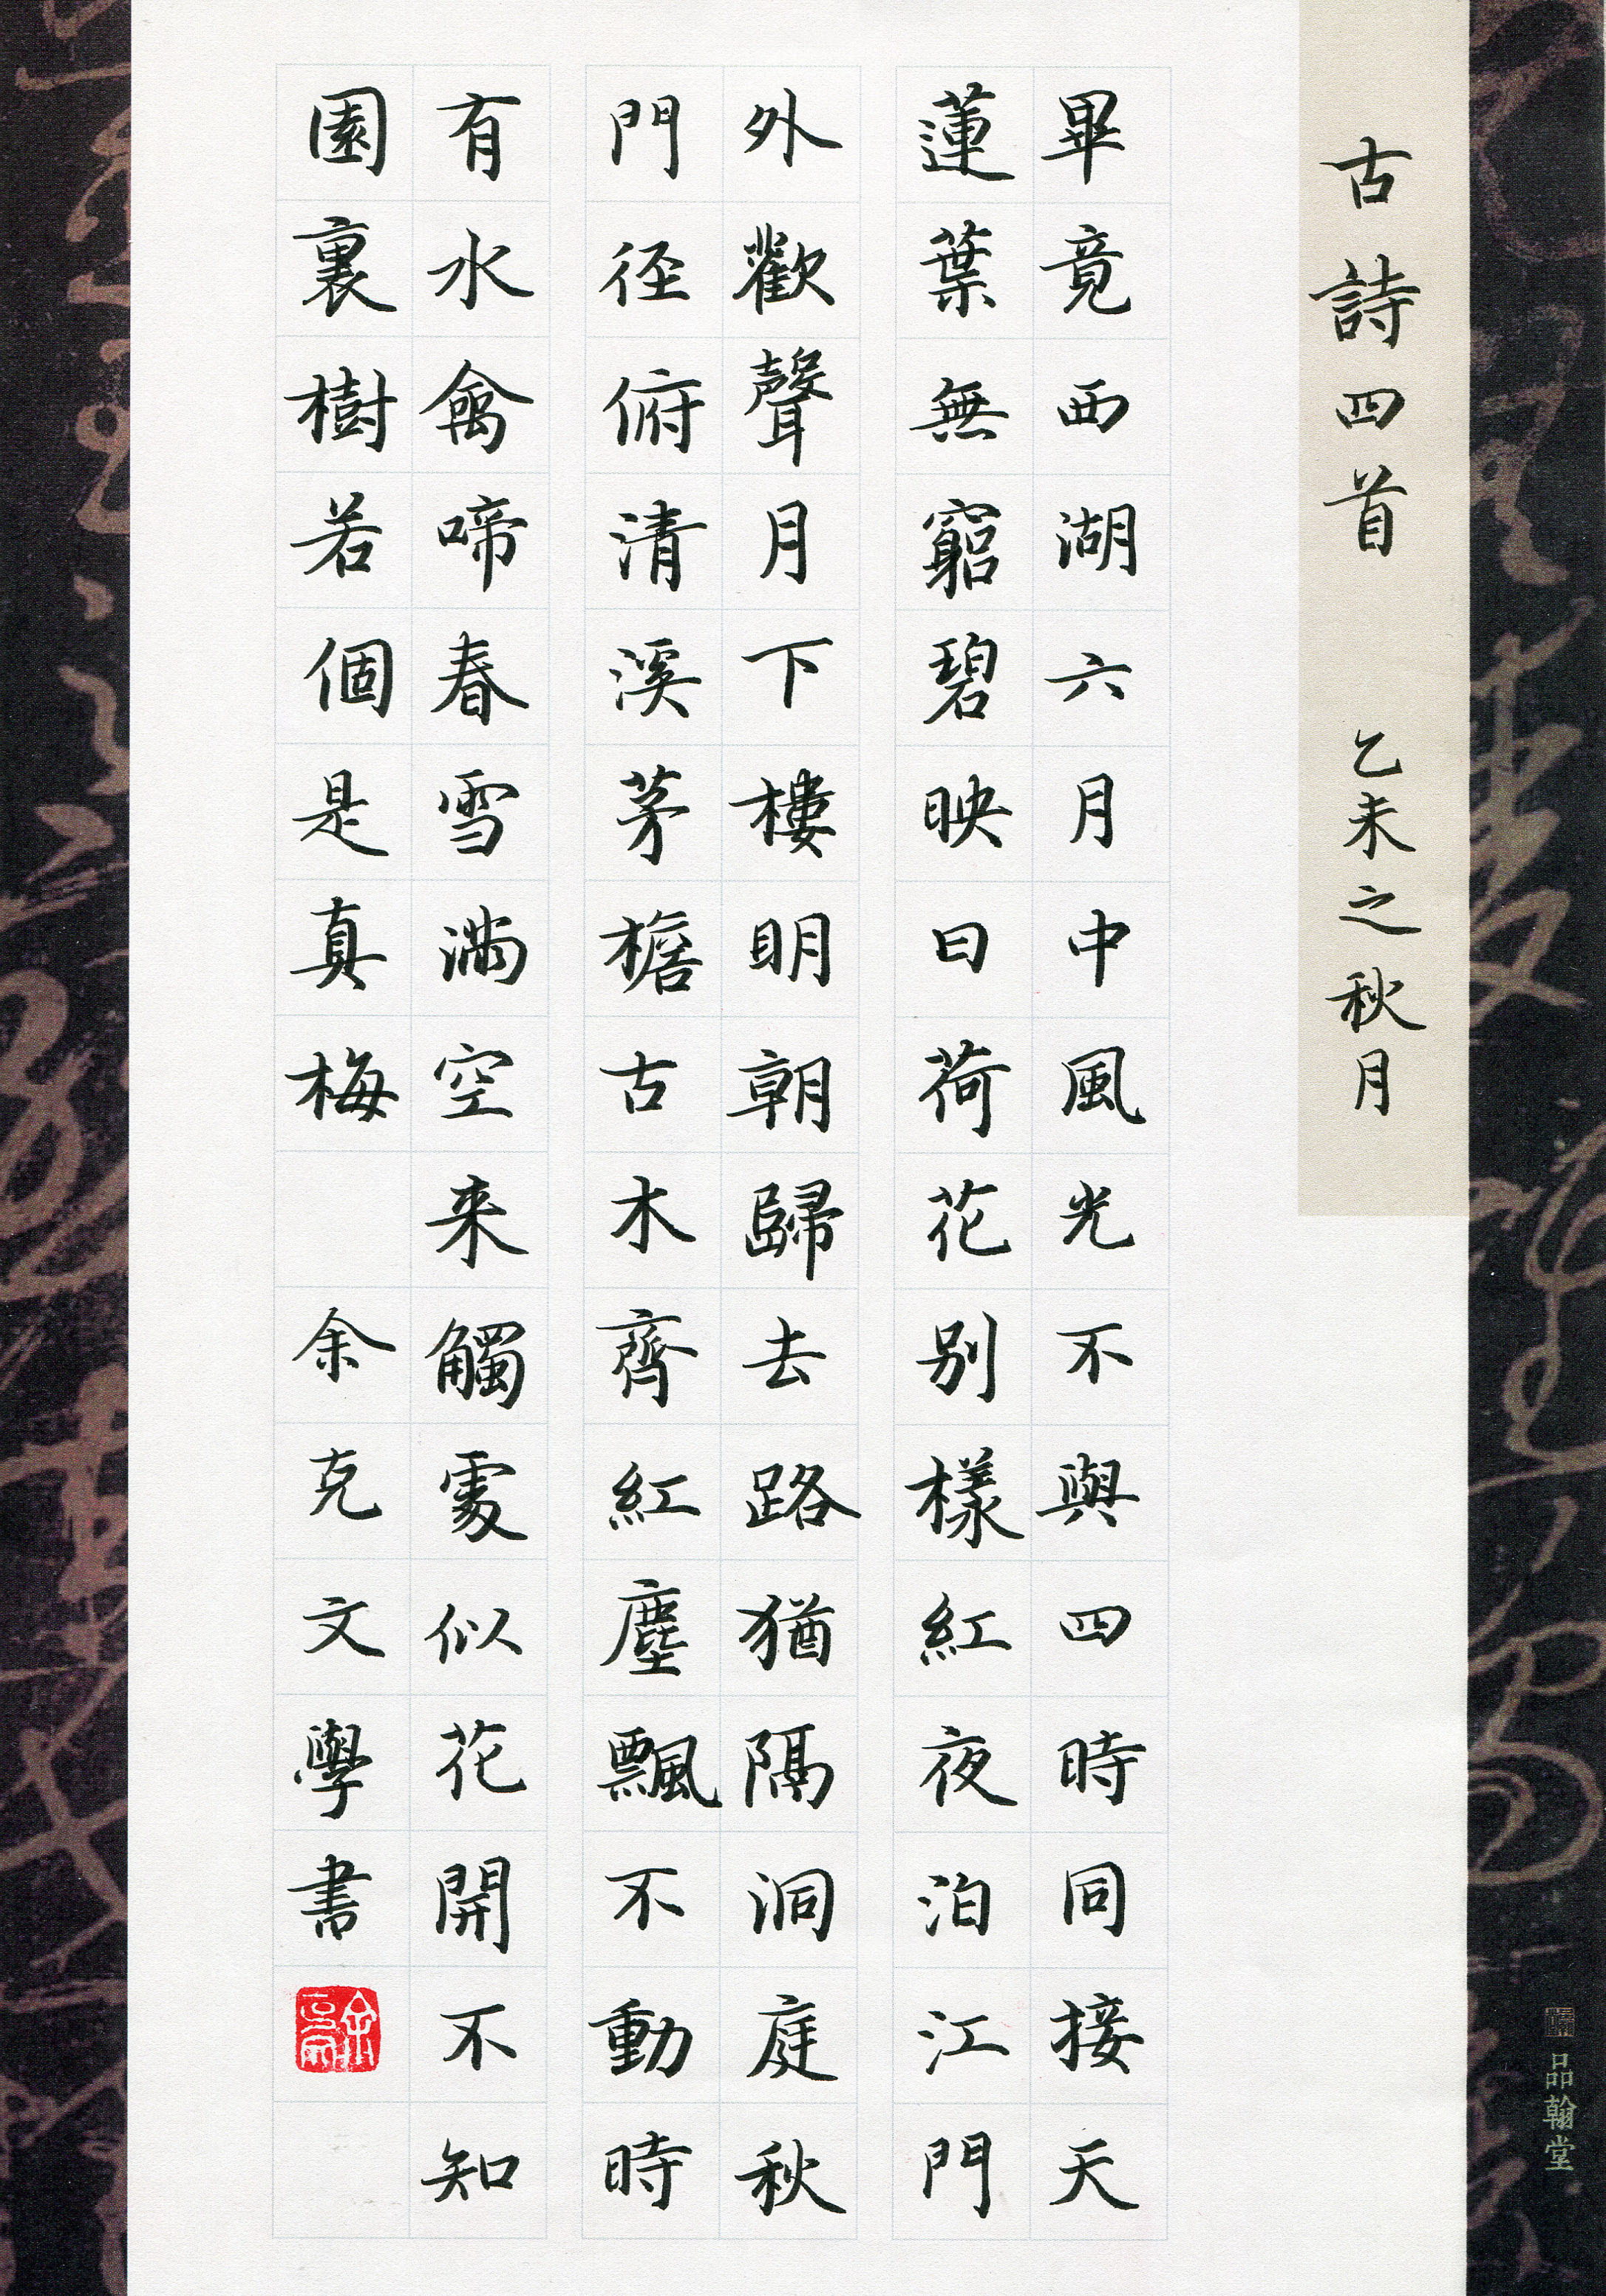 古詩四首 乙未之秋月
畢竟西湖六月中風光不與四時同接天
蓮葉無窮碧映日荷花别樣紅夜泊江門
外歡聲月下樓明朝歸去路猶隔洞庭秋
門徑俯清溪茅檐古木齊紅塵飄不動時
有水禽啼春雪滿空来觸處似花開不知
園裏樹若個是真梅 余克文學書
品翰堂